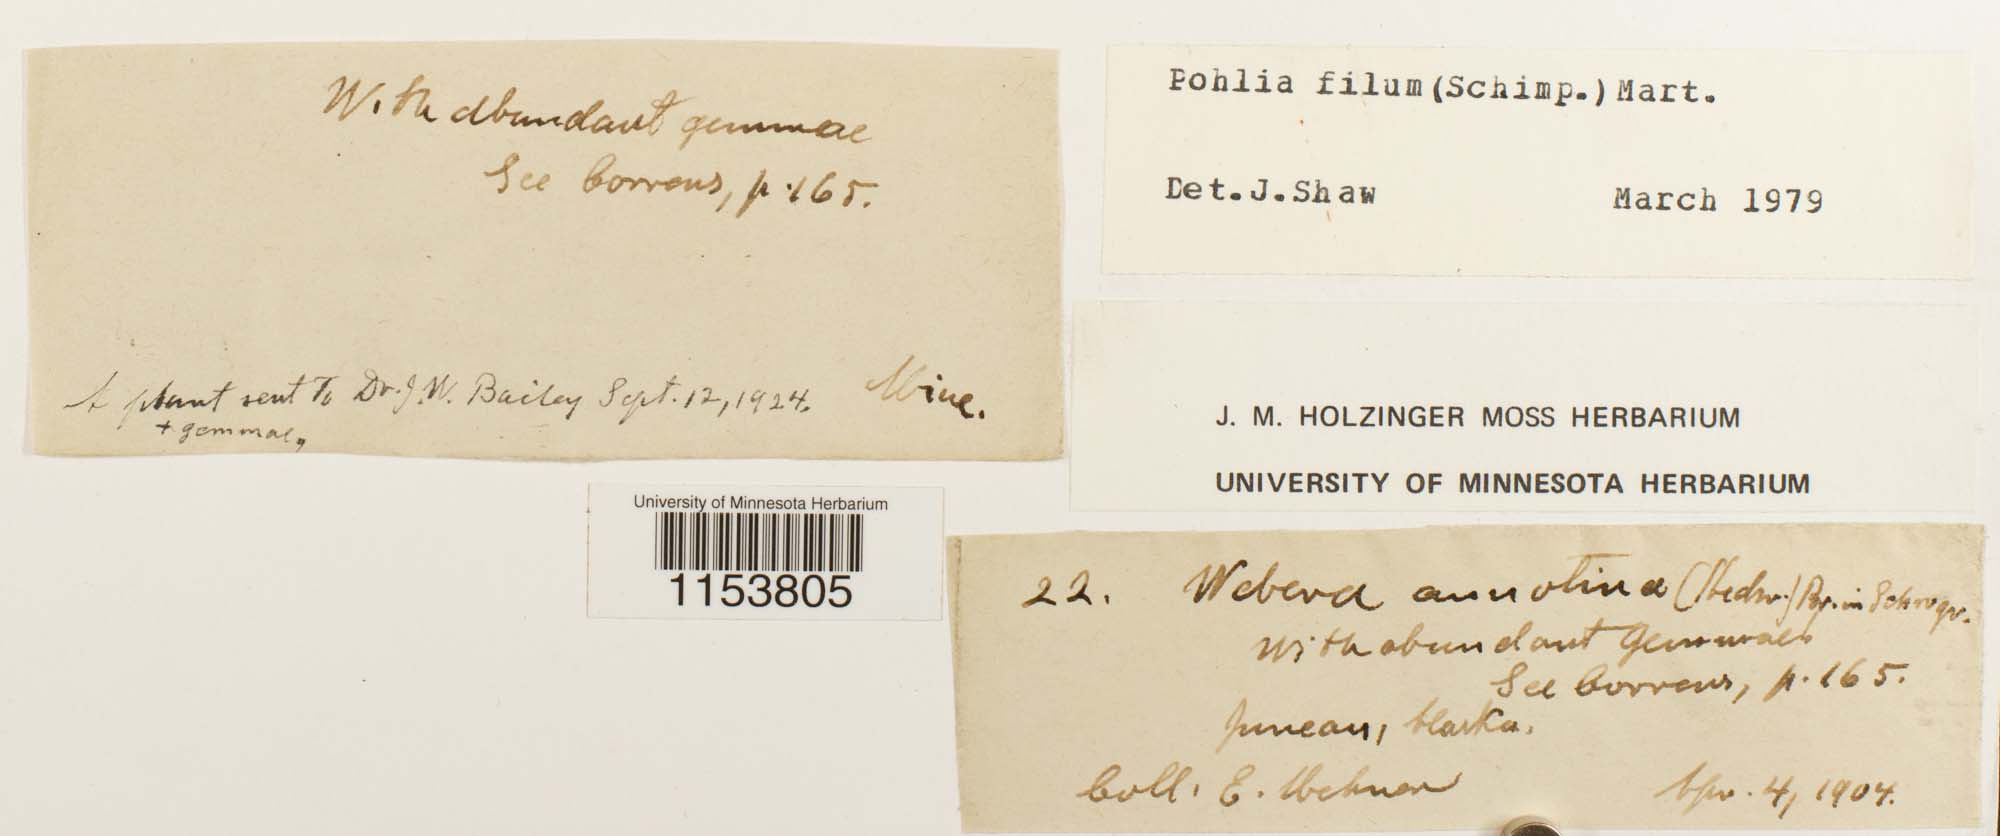 With abundant gemmae
See Correns, p. 165.
A plant sent to Dr. J. W. Bailey Sept. 12, 1924.
+ gemmae,
Mine.
Pohlia filum (Schimp.) Mart.
Det. J. Shaw March 1979
J. M. HOLZINGER MOSS HERBARIUM
UNIVERSITY OF MINNESOTA HERBARIUM
University of Minnesota Herbarium
1153805
22. Webera annotina (Hedw.) Br. in Schwgr.
With abundant Gemmae.
See Correns, p. 165.
Juneau, Alaska.
Coll. E. Apr. 4, 1904.